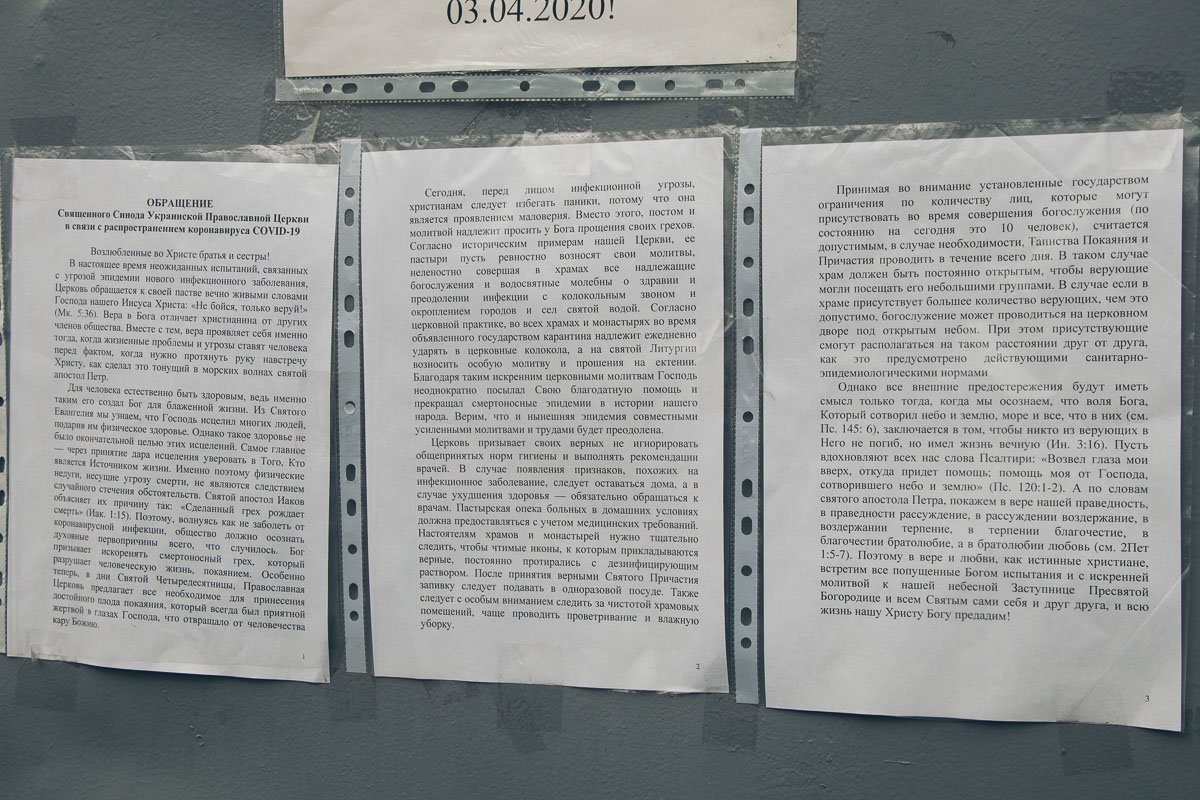 03.04.2020!
ОБРАЩЕНИЕ
Священного Синода Украинской Православной Церкви
в связи с распространением коронавируса COVID-19
Возлюбленные во Христе братья и сестры!
В настоящее время неожиданных испытаний, связанных
с угрозой эпидемии нового инфекционного заболевания,
Церковь обращается к своей пастве вечно живыми словами
Господа нашего Иисуса Христа: «Не бойся, только веруй!»
(Мк. 5:36). Вера в Бога отличает христианина от других
членов общества. Вместе с тем, вера проявляет себя именно
тогда, когда жизненные проблемы и угрозы ставят человека
перед фактом, когда нужно протянуть руку навстречу
Христу, как сделал это тонущий в морских волнах святой
апостол Петр.
Для человека естественно быть здоровым, ведь именно
таким его создал Бог для блаженной жизни. Из Святого
Евангелия мы узнаем, что Господь исцелил многих людей,
подарив им физическое здоровье. Однако такое здоровье не
было окончательной целью этих исцелений. Самое главное
— через принятие дара исцеления уверовать в Того, Кто
является Источником жизни. Именно поэтому физические
недуги, несущие угрозу смерти, не являются следствием
случайного стечения обстоятельств. Святой апостол Иаков
объясняет их причину так: «Сделанный грех рождает
смерть» (Иак. 1:15). Поэтому, волнуясь как не заболеть от
коронавирусной инфекции, общество должно осознать
духовные первопричины всего, что случилось. Бог
призывает искоренять смертоносный грех, который
разрушает человеческую жизнь, покаянием. Особенно
теперь, в дни Святой Четыредесятницы, Православная
Церковь предлагает все необходимое для принесения
достойного плода покаяния, который всегда был приятной
жертвой в глазах Господа, что отвращало от человечества
кару Божию.
1
Сегодня, перед лицом инфекционной угрозы,
христианам следует избегать паники, потому что она
является проявлением маловерия. Вместо этого, постом и
молитвой надлежит просить у Бога прощения своих грехов.
Согласно историческим примерам нашей Церкви, ее
пастыри пусть ревностно возносят свои молитвы,
неленостно совершая в храмах все надлежащие
богослужения и водосвятные молебны о здравии и
преодолении инфекции с колокольным звоном и
окроплением городов и сел святой водой. Согласно
церковной практике, во всех храмах и монастырях во время
объявленного государством карантина надлежит ежедневно
ударять в церковные колокола, а на святой Литургии
возносить особую молитву и прошения на ектении.
Благодаря таким искренним церковными молитвам Господь
неоднократно посылал Свою благодатную помощь и
прекращал смертоносные эпидемии в истории нашего
народа. Верим, что и нынешняя эпидемия совместными
усиленными молитвами и трудами будет преодолена.
Церковь призывает своих верных не игнорировать
общепринятых норм гигиены и выполнять рекомендации
врачей. В случае появления признаков, похожих на
инфекционное заболевание, следует оставаться дома, а в
случае ухудшения здоровья — обязательно обращаться к
врачам. Пастырская опека больных в домашних условиях
должна предоставляться с учетом медицинских требований.
Настоятелям храмов и монастырей нужно тщательно
следить, чтобы чтимые иконы, к которым прикладываются
верные, постоянно протирались с дезинфицирующим
раствором. После принятия верными Святого Причастия
запивку следует подавать в одноразовой посуде. Также
следует с особым вниманием следить за чистотой храмовых
помещений, чаще проводить проветривание и влажную
уборку.
2
Принимая во внимание установленные государством
ограничения по количеству лиц, которые могут
присутствовать во время совершения богослужения (по
состоянию на сегодня это 10 человек), считается
допустимым, в случае необходимости, Таинства Покаяния и
Причастия проводить в течение всего дня. В таком случае
храм должен быть постоянно открытым, чтобы верующие
могли посещать его небольшими группами. В случае если в
храме присутствует большее количество верующих, чем это
допустимо, богослужение может проводиться на церковном
дворе под открытым небом. При этом присутствующие
смогут располагаться на таком расстоянии друг от друга,
как это предусмотрено действующими санитарно-
эпидемиологическими нормами
Однако все внешние предостережения будут иметь
смысл только тогда, когда мы осознаем, что воля Бога,
Который сотворил небо и землю, море и все, что в них (см.
Пс. 145: 6), заключается в том, чтобы никто из верующих в
Него не погиб, но имел жизнь вечную (Ин. 3:16). Пусть
вдохновляют всех нас слова Псалтири: «Возвел глаза мои
вверх, откуда придет помощь; помощь моя от Господа,
сотворившего небо и землю» (Пс. 120:1-2). А по словам
святого апостола Петра, покажем в вере нашей праведность,
в праведности рассуждение, в рассуждении воздержание, в
воздержании терпение, в терпении благочестие, в
благочестии братолюбие, а в братолюбии любовь (см. 2Пет
1:5-7). Поэтому в вере и любви, как истинные христиане,
встретим все попущенные Богом испытания и с искренней
молитвой к нашей небесной Заступнице Пресвятой
Богородице и всем Святым сами себя и друг друга, и всю
жизнь нашу Христу Богу предадим!
3